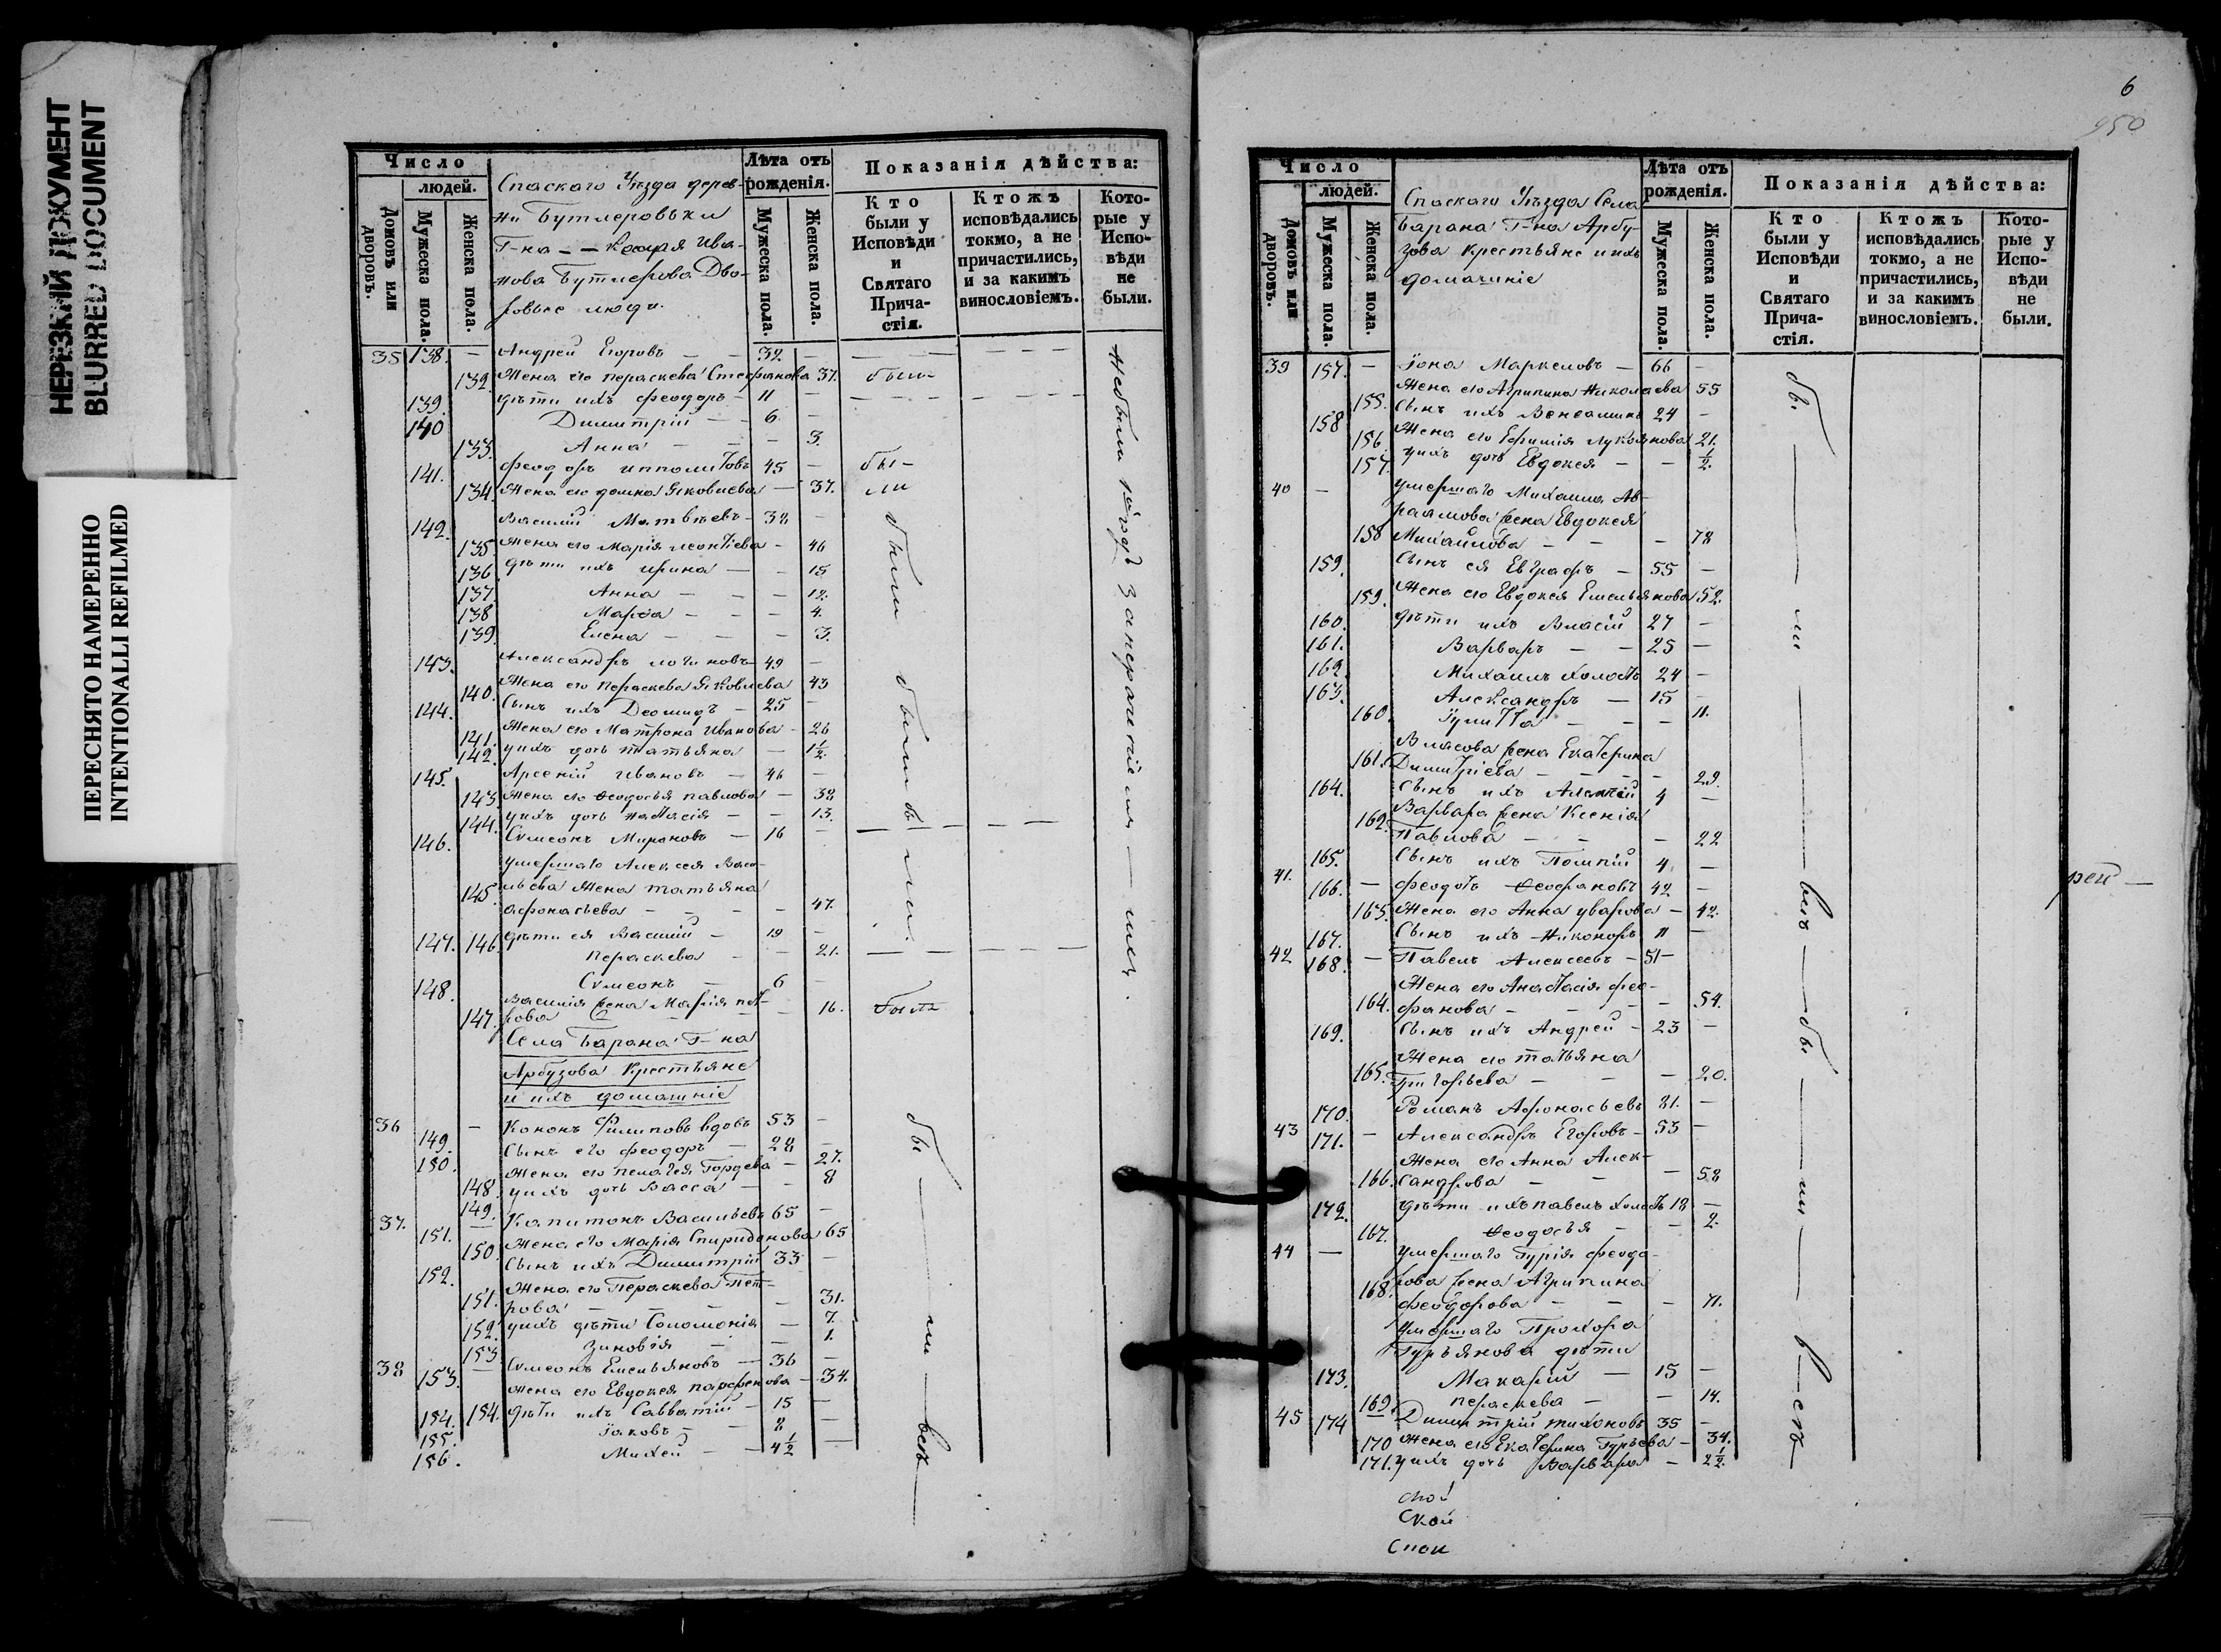 НЕРЕЗКИЙ ДОКУМЕНТ
BLURRED DOCUMENT
ПЕРЕСНЯТО НАМЕРЕННО
INTENTIONALLI REFILMED
Число
людей.
Домовъ или дворовъ.
Мужеска пола.
Женска пола.
Спаскаго Уѣзда дерев-
ни Бутлеровки
Г-на Ива-
нова Бутлерова Дво-
ровые люди.
Лѣта отъ рожденія.
Мужеска пола.
Женска пола.
Показанія дѣйства:
Кто были у Исповѣди и Святаго Прича- стія.
Ктожъ исповѣдались токмо, а не причастились, и за какимъ винословіемъ.
Кото- рые у Испо- вѣди не были.
35 138. — Андрей Егоровъ — 32 —
132. Жена его Пераскева Стефанова 37. была
139. дѣти ихъ Феодоръ — 11 —
140 Димитрій — 6 —
133. Анна — 3.
141. Феодоръ Ипполитовъ 45 — бы-
134. Жена его Домна Яковлева — 37. ли
142. Василий Матвѣевъ — 38 —
135 Жена его Марія Леонтіева — 46
136 дѣти ихъ Ирина — 15
137. Анна — 12.
138 Марѳа — 4.
139. Елена — 3.
143. Александръ Логиновъ — 49 —
140. Жена его Пераскева Яковлева 43
144. Сынъ ихъ Деомидъ — 25 —
141. Жена его Матрона Иванова — 26
142. у ихъ дочь Татьяна — 1½
145. Арсений Ивановъ — 46 —
143 Жена его Ѳеодосья Павлова — 38
144. у ихъ дочь Настасія — 13.
146. Симеонъ Мироновъ — 16 —
умершаго Алексея Васи-
145. льева Жена Татьяна
Афонасьева — 47.
147. 146. дѣти ея Василий — 19 —
Пераскева — 21.
148. Симеонъ — 6 —
Василія жена Марія Пет-
147. рова — 16. была
небыли
Села Барана Г-на
Арбузова Крестьяне
и ихъ домашніе
36 149. — Кононъ Филиповъ вдовъ 53 —
150. Сынъ его Феодоръ — 28 —
148. Жена его Пелагея Гордева — 27.
149. у ихъ дочь Васса — 8
37. 151. — Капитонъ Васильевъ 65 —
150 Жена его Марія Спиридонова 65
152. Сынъ ихъ Димитрій 33 —
Жена его Пераскева Пет-
151. рова — 31.
152. у ихъ дѣти Соломонія — 7.
153 Зиновія — 1.
38 153. — Симеонъ Емельяновъ — 36 —
Жена его Евдокея Парфенова — 34.
154. 154. дѣти ихъ Савватій — 15 —
155. Іаковъ — 8 —
156. Михей — 4½ —
6
950
Число
людей.
Домовъ или дворовъ.
Мужеска пола.
Женска пола.
Спаскаго Уѣзда Села
Барана Г-на Арбу-
зова Крестьяне и ихъ
домашніе
Лѣта отъ рожденія.
Мужеска пола.
Женска пола.
Показанія дѣйства:
Кто были у Исповѣди и Святаго Прича- стія.
Ктожъ исповѣдались токмо, а не причастились, и за какимъ винословіемъ.
Кото- рые у Испо- вѣди не были.
39 157. — Іона Маркеловъ — 66 —
155. Жена его Агрипина Николаева 55
158 Сынъ ихъ Венеаминъ 24 —
156. Жена его Ефимія Лукоянова 21.
157. у ихъ дочь Евдокея — ½.
40 — умершаго Михаила Ав-
раамова жена Евдокея
158 Михайлова — 78
159. Сынъ ея Евграфъ — 55 —
159. Жена его Евдокея Емельянова 52.
160. дѣти ихъ Власій 27 —
161. Варваръ — 25 —
162. Михаилъ холостъ 24 —
163. Александръ — 15 —
160. Іулитта — 11.
Власова жена Екатерина
161. Димитріева — 29.
164. Сынъ ихъ Алексій 4 —
Варвара жена Ксенія
162. Павлова — 22
165. Сынъ ихъ 4 —
41. 166. — Феодотъ Ѳеофановъ 42 —
163. Жена его Анна Уварова — 42.
167. Сынъ ихъ Никоноръ 11 —
42 168. — Павелъ Алексеевъ — 51 —
Жена его Анастасія Фео-
164. фанова — 54.
169. Сынъ ихъ Андрей — 23 —
Жена его Татьяна
165. Григорьева — 20.
170. Романъ Афонасьевъ 21. —
43 171. — Александръ Егоровъ — 53 —
Жена его Анна Алек-
166. сандрова — 58
172. дѣти ихъ Павелъ холостъ 18 —
167. Ѳеодосья — 2.
44 — умершаго Гурія Феодо-
168. рова жена Агрипина
Феодорова — 71.
умершаго Прохора
Гурьянова дѣти
173. Макарій — 15 —
169. Пераскева — 14.
45 174 Димитрій Тихоновъ 35 —
170 Жена его Екатерина Гурьева — 34.
171. у ихъ дочь Варвара — 2½.
Скои